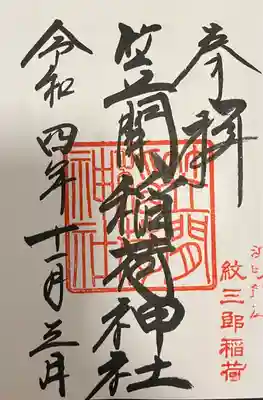 奉拝
笠間稲荷神社
令和四年十一月三日
紋三郎稲荷